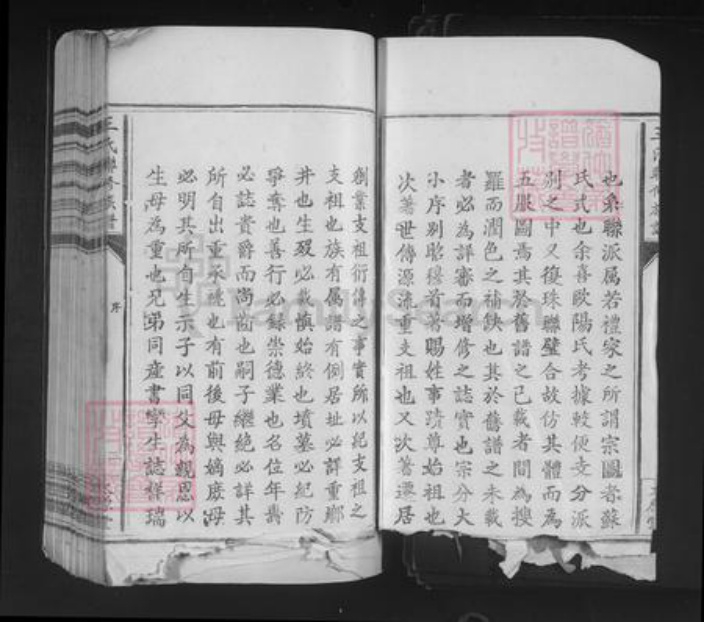 也系聯派属若禮家之所謂宗圖者蘇
氏式也余喜歐陽氏考據較便支分派
別之中又復珠聯璧合故仿其體而為
五服圖焉其於舊譜之已載者間為搜
羅而潤色之補缺也其於舊譜之未載
者必為詳審而增修之誌實也宗分大
小序別昭穆首著賜姓事蹟尊始祖也
次著世傳源流重支祖也又次著遷居
創業支祖衍傳之事實所以紀支祖之
支祖也族有属譜有例居址必詳重鄉
井也生殁必載慎始終也墳墓必紀防
爭奪也善行必錄崇德業也名位年壽
必誌貴爵而尚齒也嗣子繼絶必詳其
所自出重承祧也有前後母與嫡庶母
必明其所自生示子以同父為親恩以
生母為重也兄弟同產書孿生誌祥瑞
王氏聯修族譜
序
二
FamilySearch